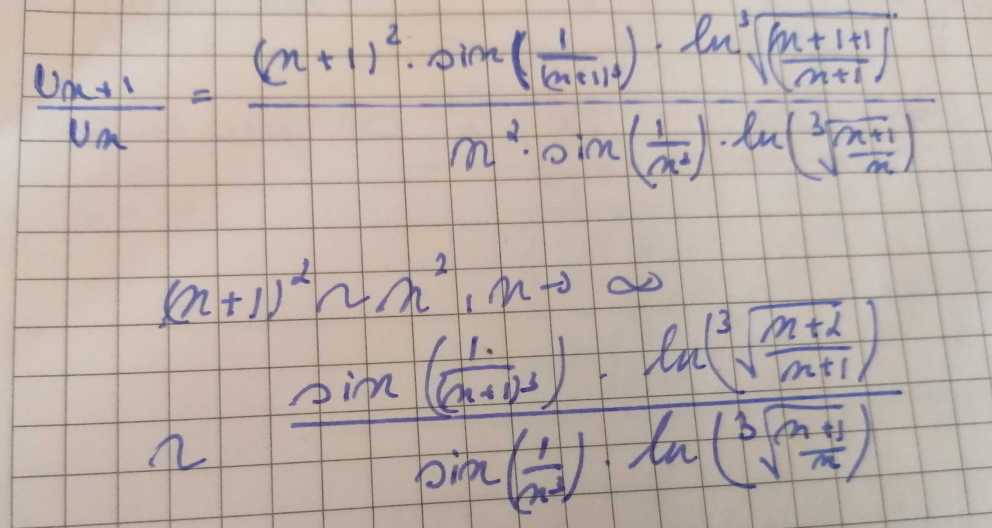 Un+1/Un = ((n+1)² · sin(1/(n+1)³) · ln ³√((n+1+1)/(n+1))) / (n² · sin(1/n³) · ln(³√((n+1)/n)))
(n+1)² ~ n², n → ∞
~ (sin(1/(n+1)³) · ln(³√((n+2)/(n+1)))) / (sin(1/n³) · ln(³√((n+1)/n)))